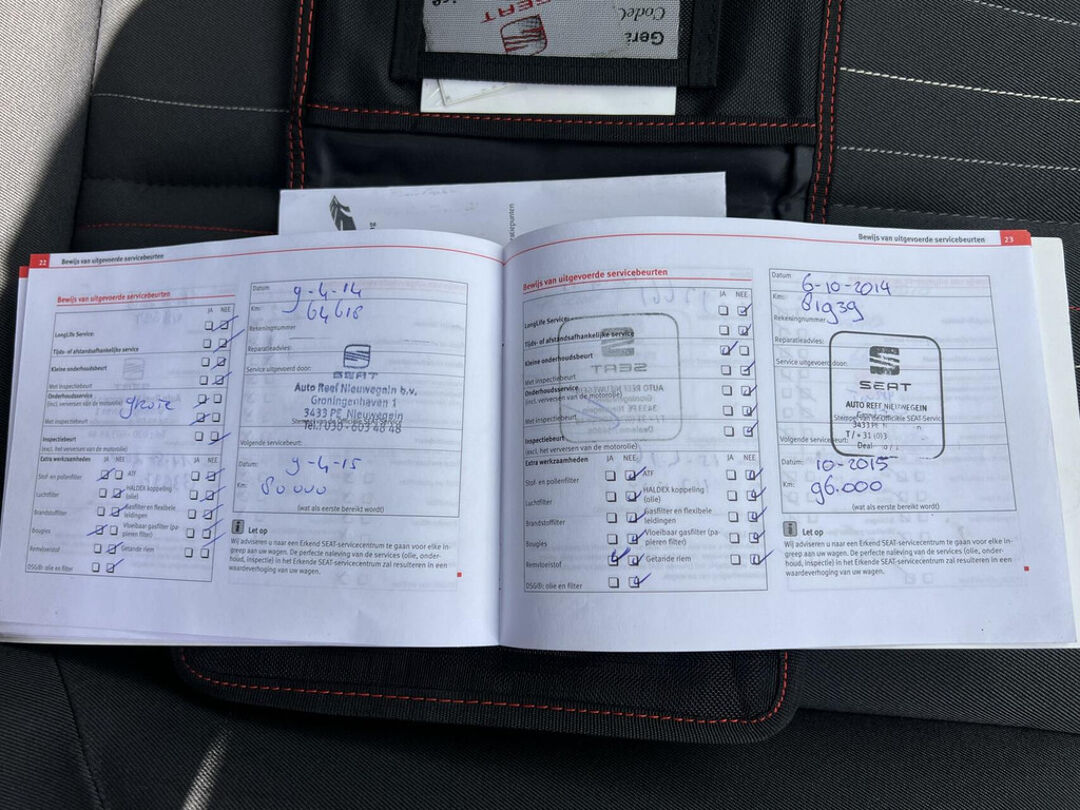 SEAT
Code
22 Bewijs van uitgevoerde servicebeurten
Bewijs van uitgevoerde servicebeurten
JA NEE
LongLife Service:
Tijds- of afstandsafhankelijke service
Kleine onderhoudsbeurt
Met inspectiebeurt
Onderhoudsservice
(incl. verversen van de motorolie)
grote
Met inspectiebeurt
Inspectiebeurt
(excl. het verversen van de motorolie)
Extra werkzaamheden JA NEE JA NEE
Stof- en pollenfilter
ATF
Luchtfilter
HALDEX koppeling (olie)
Brandstoffilter
Gasfilter en flexibele leidingen
Bougies
Vloeibaar gasfilter (pa-
pieren filter)
Remvloeistof
Getande riem
DSG®; olie en filter
Datum 9-4-14
Km: 64618
Rekeningnummer
Reparatieadvies:
Service uitgevoerd door:
SEAT
Auto Reef Nieuwegein b.v.
Groningenhaven 1
3433 PE Nieuwegein
Stempel van de Officiële SEAT-Service
Tel.: 030 - 603 48 48
Volgende servicebeurt:
Datum: 9-4-15
Km: 80000
(wat als eerste bereikt wordt)
Let op
Wij adviseren u naar een Erkend SEAT-servicecentrum te gaan voor elke in-
greep aan uw wagen. De perfecte naleving van de services (olie, onder-
houd, inspectie) in het Erkende SEAT-servicecentrum zal resulteren in een
waardeverhoging van uw wagen.
Bewijs van uitgevoerde servicebeurten 23
Bewijs van uitgevoerde servicebeurten
JA NEE
LongLife Service:
Tijds- of afstandsafhankelijke service
Kleine onderhoudsbeurt
Met inspectiebeurt
Onderhoudsservice
(incl. verversen van de motorolie)
Met inspectiebeurt
Inspectiebeurt
(excl. het verversen van de motorolie)
Extra werkzaamheden JA NEE JA NEE
Stof- en pollenfilter
ATF
Luchtfilter
HALDEX koppeling
(olie)
Brandstoffilter
Gasfilter en flexibele
leidingen
Bougies
Vloeibaar gasfilter (pa-
pieren filter)
Remvloeistof
Getande riem
DSG®; olie en filter
Datum 6-10-2014
Km: 81939
Rekeningnummer
Reparatieadvies:
Service uitgevoerd door:
SEAT
AUTO REEF NIEUWEGEIN
Stempel van de Officiële SEAT-Service
3433 P
Volgende servicebeurt:
Datum: 10-2015
Km: 96.000
(wat als eerste bereikt wordt)
Let op
Wij adviseren u naar een Erkend SEAT-servicecentrum te gaan voor elke in-
greep aan uw wagen. De perfecte naleving van de services (olie, onder-
houd, inspectie) in het Erkende SEAT-servicecentrum zal resulteren in een
waardeverhoging van uw wagen.